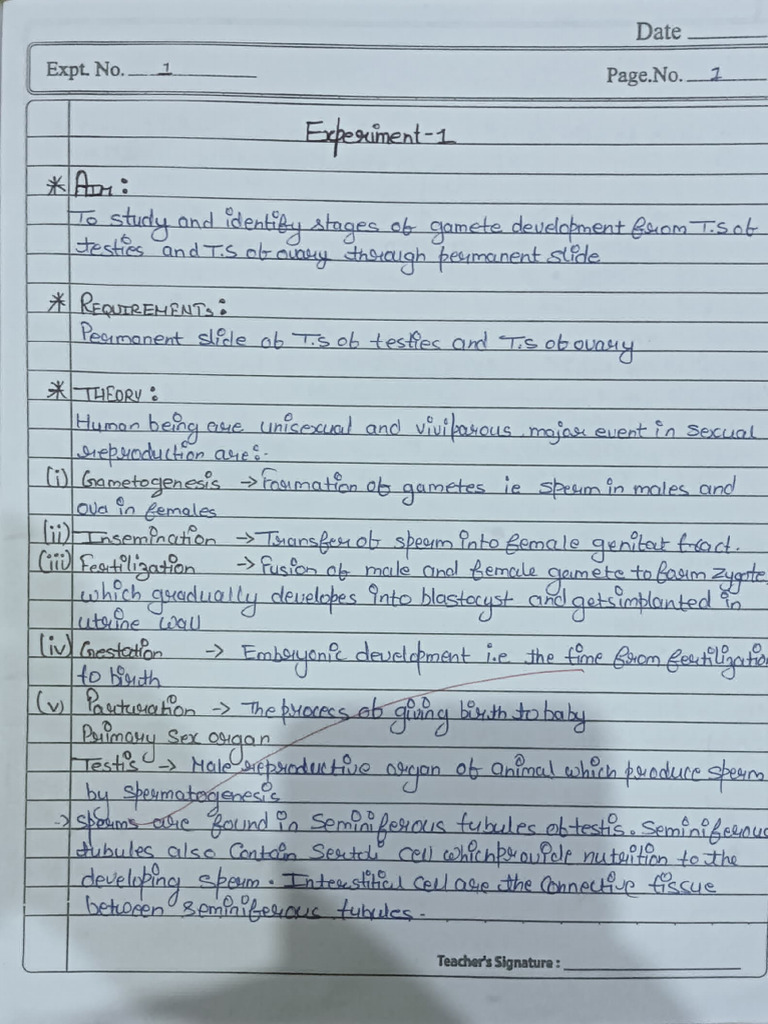 Date
Expt. No. 1
Page.No. 1
Experiment-1
* AIM :
To study and identify stages of gamete development from T.S of
testies and T.S of ovary through permanent slide
* REQUIREMENTS :
Permanent slide of T.S of testies and T.S of ovary
* THEORY :
Human being are unisexual and viviparous. major event in sexual
reproduction are:-
(i) Gametogenesis → Formation of gametes ie sperm in males and
ova in females
(ii) Insemination → Transfer of sperm into female genital tract.
(iii) Fertilization → Fusion of male and female gamete to form zygote
which gradually developes into blastocyst and gets implanted in
uterine wall
(iv) Gestation → Embryonic development i.e the time from fertilization
to birth
(v) Parturation → The process of giving birth to baby
Primary Sex organ
Testis → Male reproductive organ of animal which produce sperm
by spermatogenesis
→ sperms are found in seminiferous tubules of testis. Seminiferous
tubules also contain Sertoli cell which provide nutrition to the
developing sperm. Interstitial cell are the connective tissue
between seminiferous tubules.
Teacher's Signature :